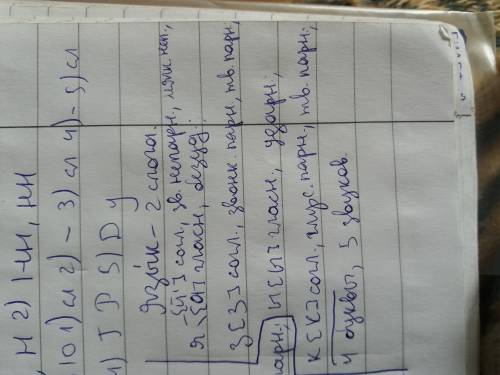 Н 2) НН, НН
10 1) сл 2) – 3) сл 4) – 5) сл
J P S) D У
Язык – 2 слога.
Я –[й'] согл, зв. непарн., мягк неп.,
[а] гласн, безуд.;
з [з] согл., звонк. парн, тв. парн.;
ы [ы] гласн, ударн;
парн;
к [к] согл., глух. парн., тв. парн;
4 буквы, 5 звуков.